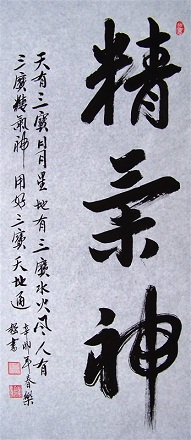 精氣神
天有三寶日月星地有三寶水火风人有
三寶精氣神用好三寶天地通
辛卯年春樂
超書